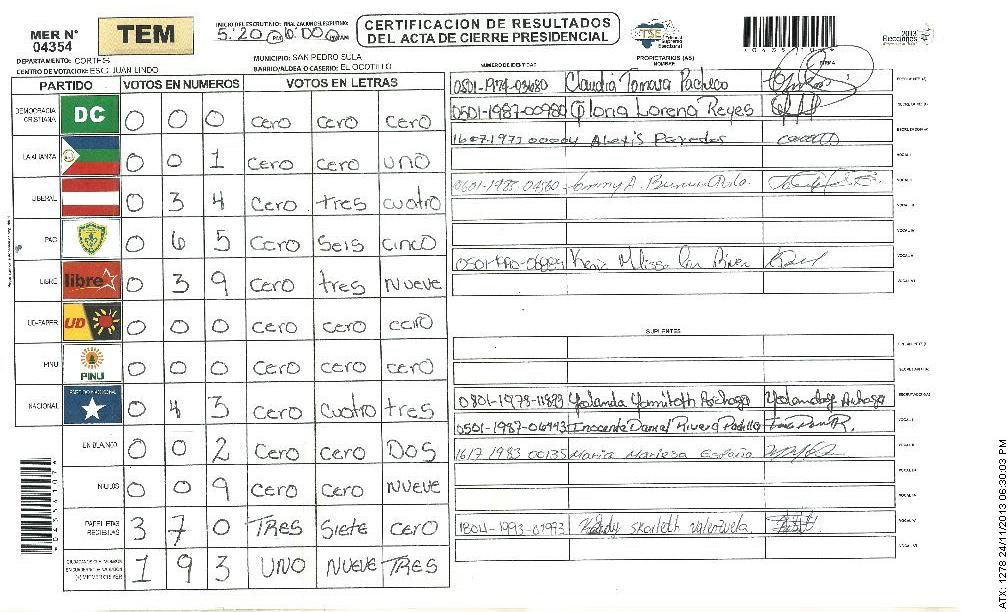 MER N° 04354
TEM
INICIO DEL ESCRUTINIO: FINALIZACION DEL ESCRUTINIO:
5:20 PM 6:00 PM AM
CERTIFICACION DE RESULTADOS
DEL ACTA DE CIERRE PRESIDENCIAL
TSE Tribunal Supremo Electoral
2013 Elecciones
DEPARTAMENTO: CORTES
MUNICIPIO: SAN PEDRO SULA
CENTRO DE VOTACION: ESC. JUAN LINDO
BARRIO/ALDEA O CASERIO: EL OCOTILLO
PARTIDO VOTOS EN NUMEROS VOTOS EN LETRAS
DEMOCRACIA CRISTIANA DC 0 0 0 cero cero cero
LA ALIANZA 0 0 1 cero cero uno
LIBERAL 0 3 4 cero tres cuatro
PAC 0 6 5 cero seis cinco
LIBRE libre 0 3 9 cero tres nueve
UD-FAPER UD 0 0 0 cero cero cero
PINU PINU 0 0 0 cero cero cero
NACIONAL PARTIDO NACIONAL 0 4 3 cero cuatro tres
EN BLANCO 0 0 2 cero cero Dos
NULOS 0 0 9 cero cero nueve
PAPELETAS RECIBIDAS 3 7 0 TRES Siete cero
1 9 3 UNO NUEVE TRES
NUMERO IDENTIDAD PROPIETARIOS (AS) NOMBRE FIRMA
0501-1974-03680 Claudia Tamara Pacheco
0501-1987-00980 Gloria Lorena Reyes
1607-1973 00004 Alexis Paredes
0601-1985 04560
SUPLENTES
0801-1978-11893 Yolanda Yamileth Archaga
0501-1987-06443 Inocente Daniel Rivera Padilla
1617 1983 00135 Maria Mariesa España
1804-1993-01993 Skarleth Valenzuela
ATX: 1278 24/11/2013 06:30:03 PM